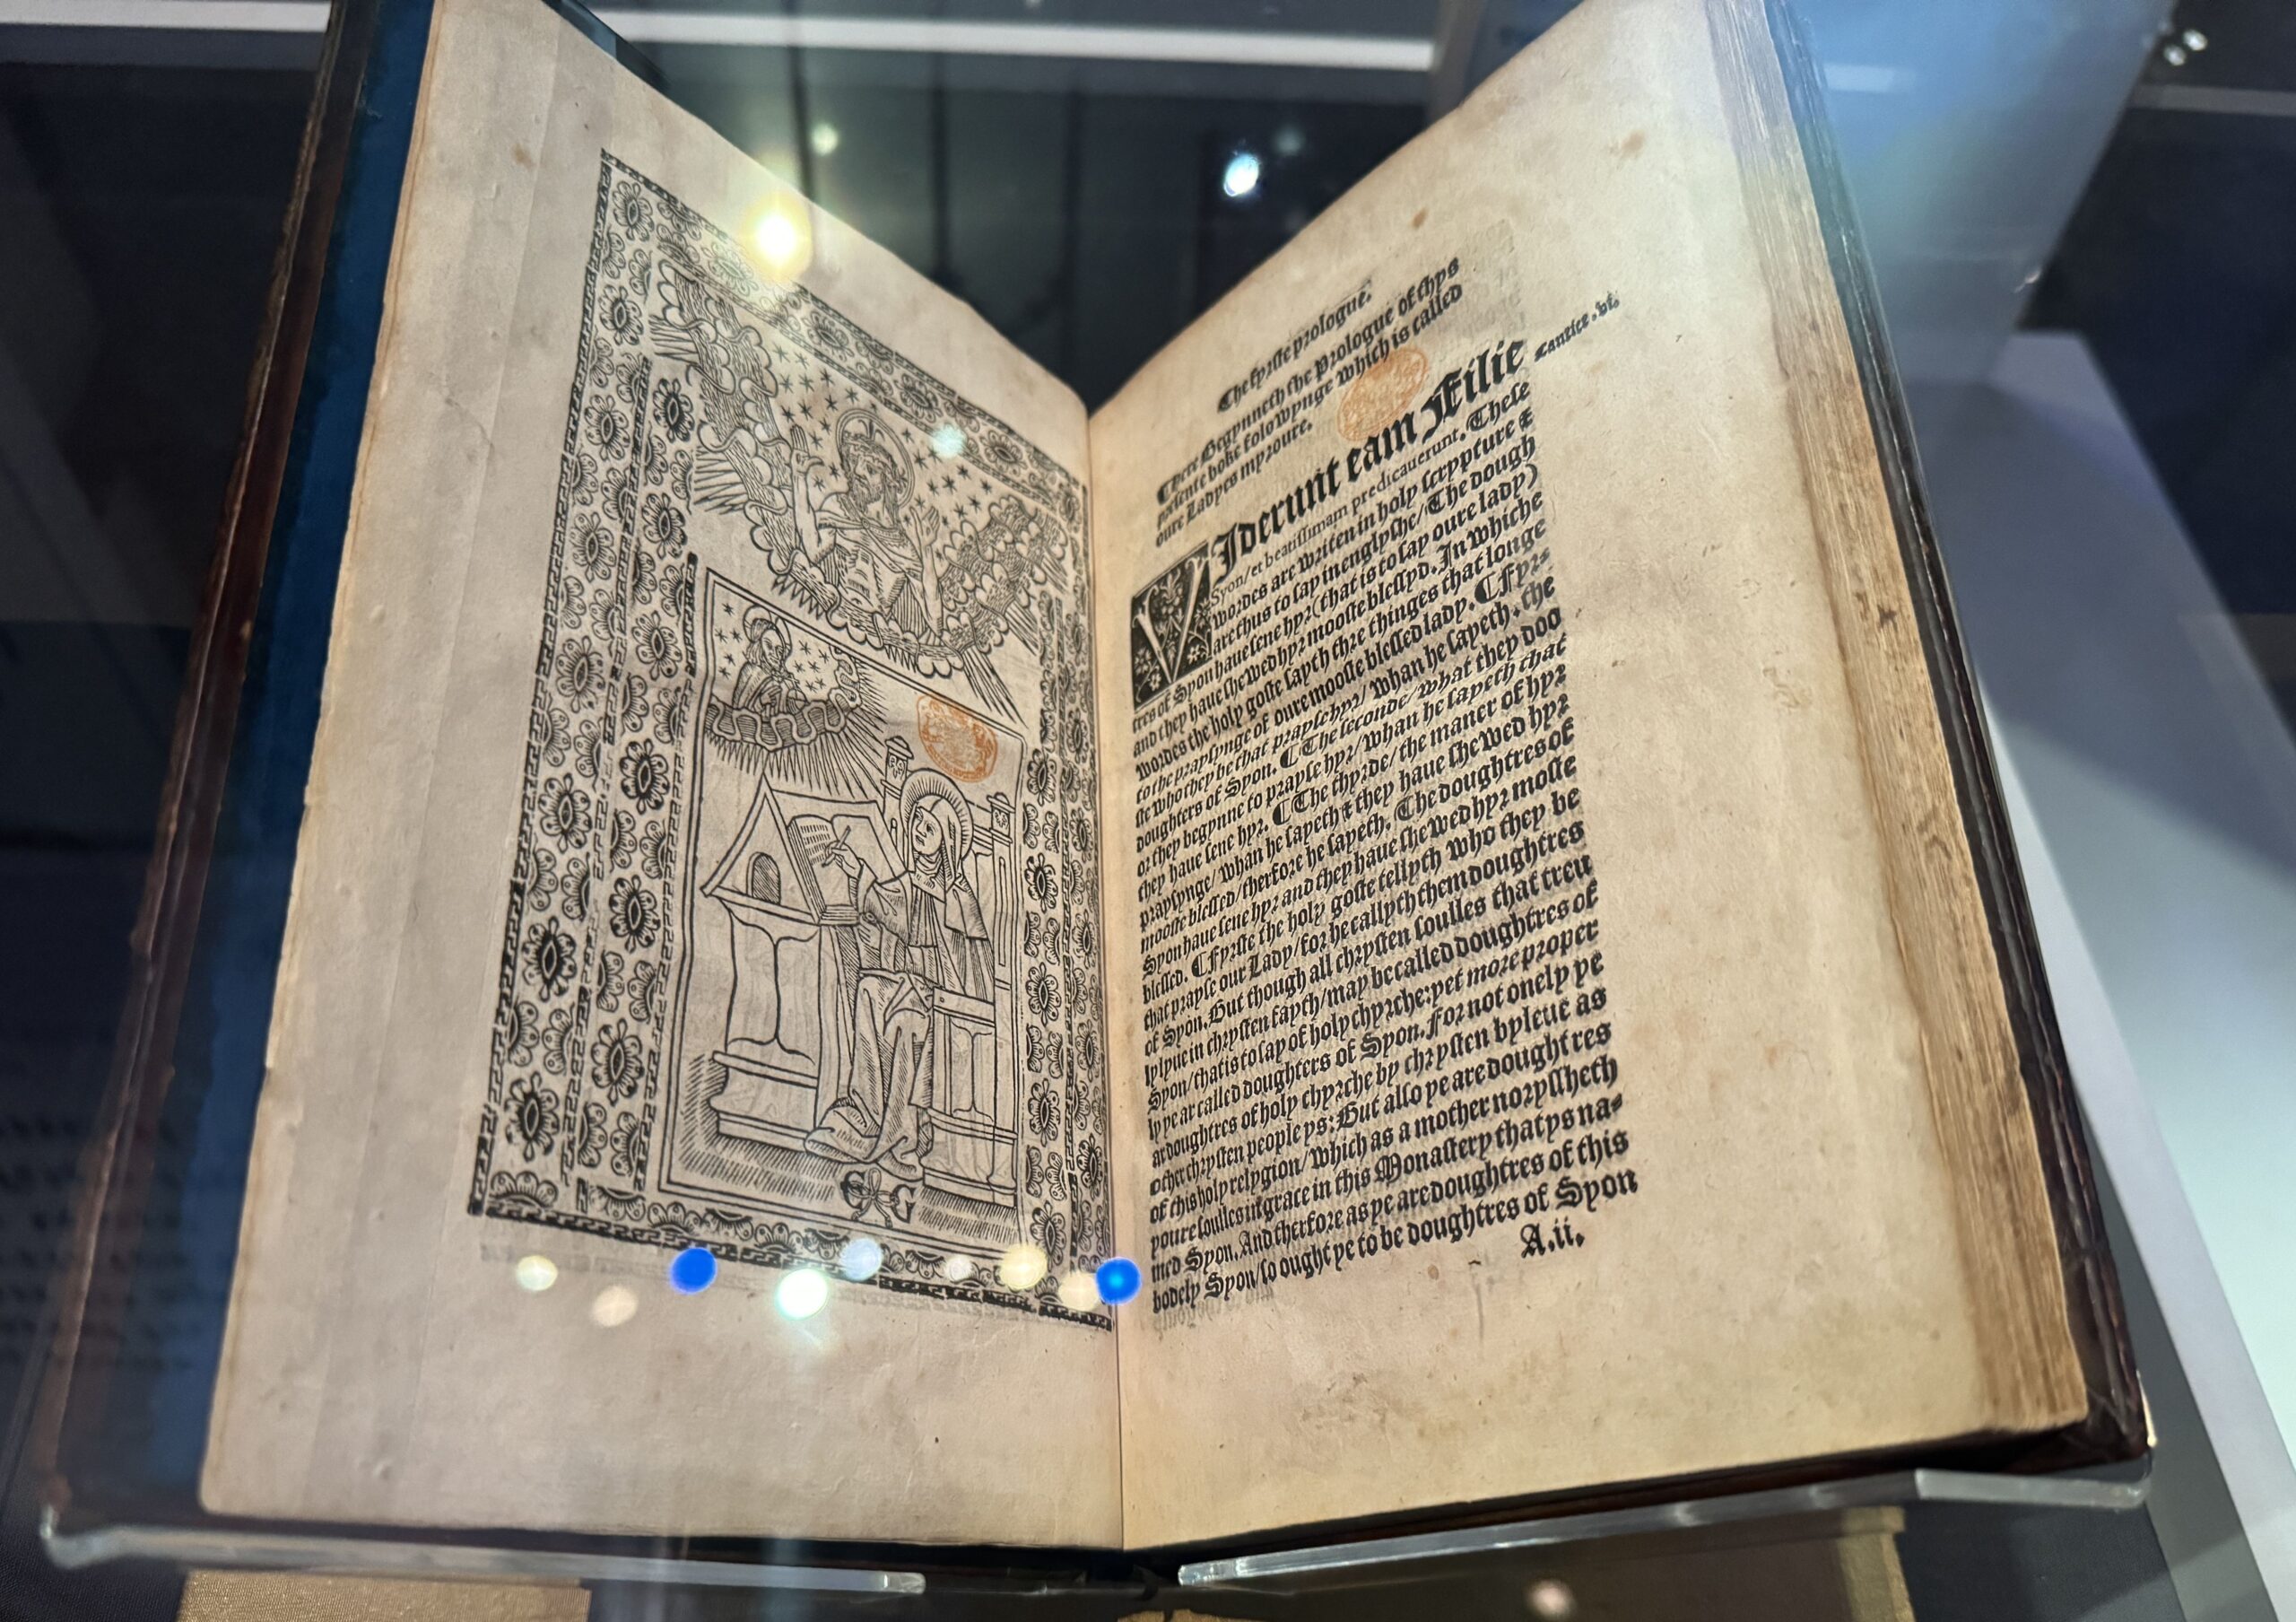 The fyrste prologue.
There Begynneth the Prologue of thys
presente boke folowynge which is called
oure Ladyes myroure.
VIderunt eam Filie
Cantice .vi.
Syon/et beatissimam predicauerunt. These
wordes are writen in holy scrypture &
are thus to say in englysshe/ The dough
tres of Syon haue sene hyr (that is to say oure lady)
and they haue shewed hyr mooste blessyd. In whiche
wordes the holy goste sayth thre thinges that longe
to the praysynge of oure mooste blessed lady. ¶ Fyr-
ste who they be that prayse hyr/ whan he sayeth. the
doughters of Syon. ¶ The seconde/ what they doo
or they begynne to prayse hyr/ whan he sayeth that
they haue sene hyr. ¶ The thyrde/ the maner of hyr
praysynge/ whan he sayeth & they haue shewed hyr
mooste blessed/ therfore he sayeth. The doughtres of
Syon haue sene hyr and they haue shewed hyr moste
blessed. ¶ Fyrste the holy goste tellyth who they be
that prayse our Lady/ for he callyth them doughtres
of Syon. But though all chrysten soulles that treu
lylyue in chrysten fayth/ may be called doughtres of
Syon/ that is to say of holy chyrche: yet more proper
ly ye ar called doughters of Syon. For not onely ye
ar doughtres of holy chyrche by chrysten byleue as
other chrysten people ys: But also ye are doughtres
of this holy relygion/ which as a mother noryssheth
youre soulles in grace in this Monastery that ys na-
med Syon. And therfore as ye are doughtres of this
bodely Syon/ so ought ye to be doughtres of Syon
A.ii.